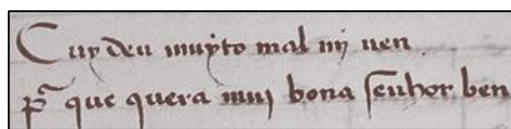 Cuydeu muyto mal mj uen
pᷓ que quera muj bona senhor ben